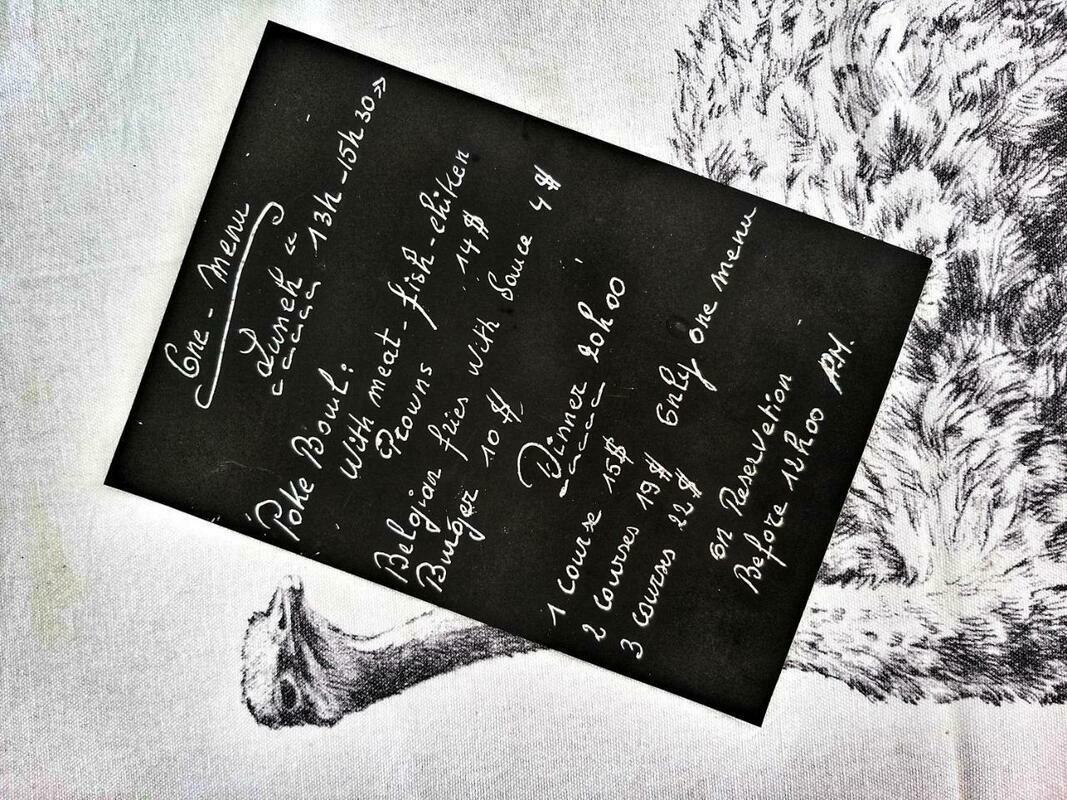 One-Menu
Lunch "13h-15h30"
Poke Bowl:
With meat-fish-chiken
Prowns 14$
Belgian fries with Sauce 4$
Burger 10$
Dinner 20h00
1 course 15$
2 courses 19$ Only one menu
3 courses 22$
on Reservation
Before 12h00 P.M.